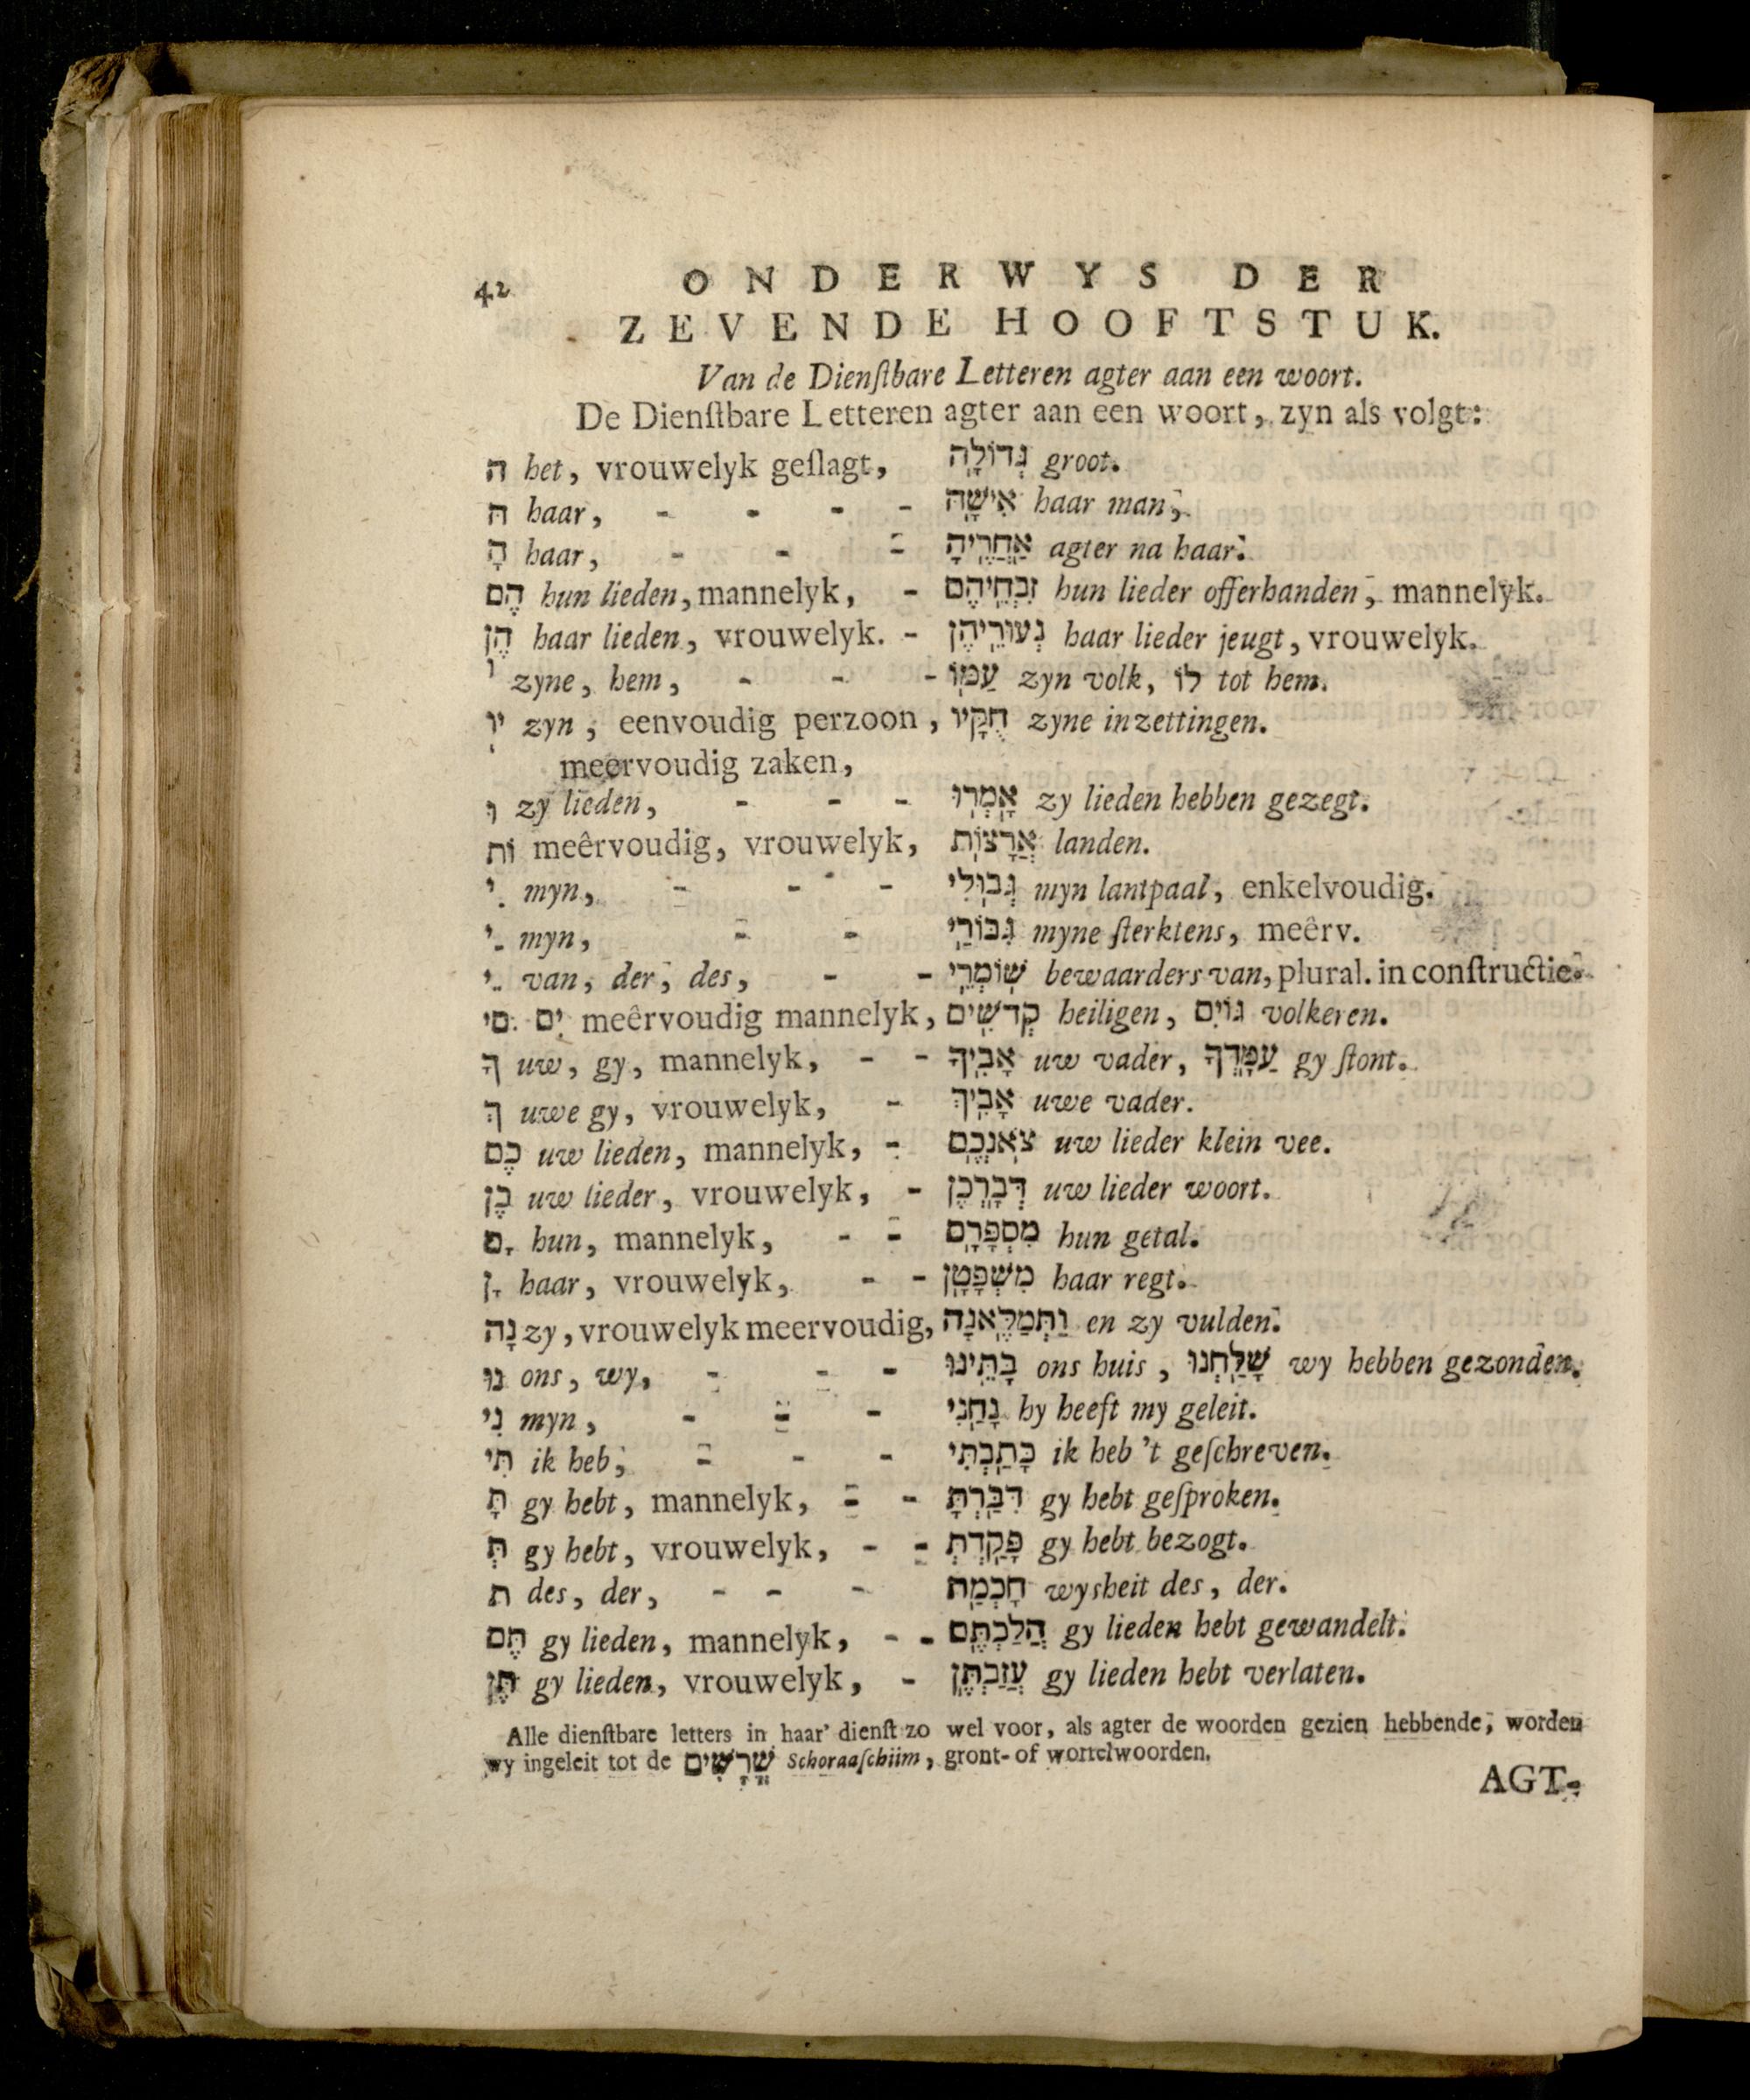 42 ONDERWYS DER
ZEVENDE HOOFTSTUK.
Van de Dienſtbare Letteren agter aan een woort.
De Dienſtbare Letteren agter aan een woort, zyn als volgt:
ה het, vrouwelyk geſlagt, גְּדוֹלָה groot.
הּ haar, - - - - אִישָׁהּ haar man,
הָ haar, - - - אַחֲרֶיהָ agter na haar.
הֶם hun lieden, mannelyk, - זִבְחֵיהֶם hun lieder offerhanden, mannelyk.
הֶן haar lieden, vrouwelyk. - נְעוּרֵיהֶן haar lieder jeugt, vrouwelyk.
וֹ zyne, hem, - - - עַמּוֹ zyn volk, לוֹ tot hem.
יו zyn, eenvoudig perzoon, חֻקָּיו zyne inzettingen.
meervoudig zaken,
וּ zy lieden, - - - אָמְרוּ zy lieden hebben gezegt.
וֹת meêrvoudig, vrouwelyk, אֲרָצוֹת landen.
יִ myn, - - - גְּבוּלִי myn lantpaal, enkelvoudig.
יַ myn, - - גִּבּוֹרַי myne ſterktens, meêrv.
יֵ van, der, des, - - שׁוֹמְרֵי bewaarders van, plural. in conſtructie.
יִם .ים meêrvoudig mannelyk, קְדֹשִׁים heiligen, גּוֹיִם volkeren.
ךָ uw, gy, mannelyk, - - אָבִיךָ uw vader, עַמָּדֶךָ gy ſtont.
ךְ uwe gy, vrouwelyk, - אָבִיךְ uwe vader.
כֶם uw lieden, mannelyk, - צֹאנְכֶם uw lieder klein vee.
כֶן uw lieder, vrouwelyk, - דְּבָרְכֶן uw lieder woort.
ָם hun, mannelyk, - - מִסְפָּרָם hun getal.
ָן haar, vrouwelyk, - - מִשְׁפָּטָן haar regt.
נָה zy, vrouwelyk meervoudig, וַתְּמַלֶּאנָה en zy vulden.
נוּ ons, wy, - - - בָּתֵּינוּ ons huis, שָׁלַחְנוּ wy hebben gezonden.
נִי myn, - - - נָחַנִי hy heeft my geleit.
תִּי ik heb, - - - כָּתַבְתִּי ik heb 't geſchreven.
תָּ gy hebt, mannelyk, - - דִּבַּרְתָּ gy hebt geſproken.
תְּ gy hebt, vrouwelyk, - - פָּקַדְתְּ gy hebt bezogt.
ת des, der, - - - חָכְמַת wysheit des, der.
תֶּם gy lieden, mannelyk, - - הֲלַכְתֶּם gy lieden hebt gewandelt.
תֶּן gy lieden, vrouwelyk, - עֲזַבְתֶּן gy lieden hebt verlaten.
Alle dienſtbare letters in haar' dienſt zo wel voor, als agter de woorden gezien hebbende, worden
wy ingeleit tot de שֳׁרָשִׁים Schoraaſchiim, gront- of wortelwoorden.
AGT-